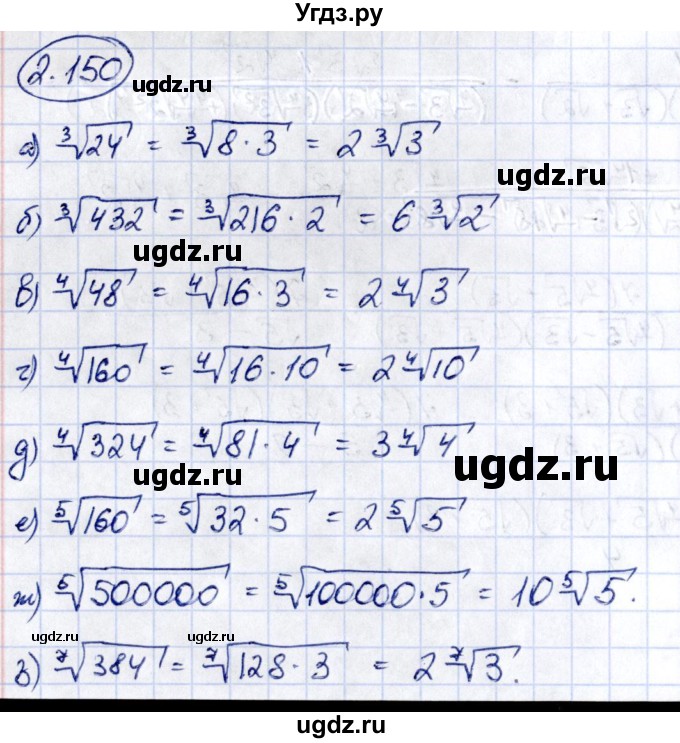 Угдз.ру
2.150
ugdz.ru
а) ∛24 = ∛8·3 = 2∛3
ugdz.ru
б) ∛432 = ∛216·2 = 6∛2
ugdz.ru
в) ∜48 = ∜16·3 = 2∜3
г) ∜160 = ∜16·10 = 2∜10
д) ∜324 = ∜81·4 = 3∜4
ugdz.ru
ugdz.ru
е) ⁵√160 = ⁵√32·5 = 2⁵√5
ж) ⁵√500000 = ⁵√100000·5 = 10⁵√5.
ugdz.ru
ugdz.ru
з) ⁷√384 = ⁷√128·3 = 2⁷√3.
ugdz.ru
ugdz.ru